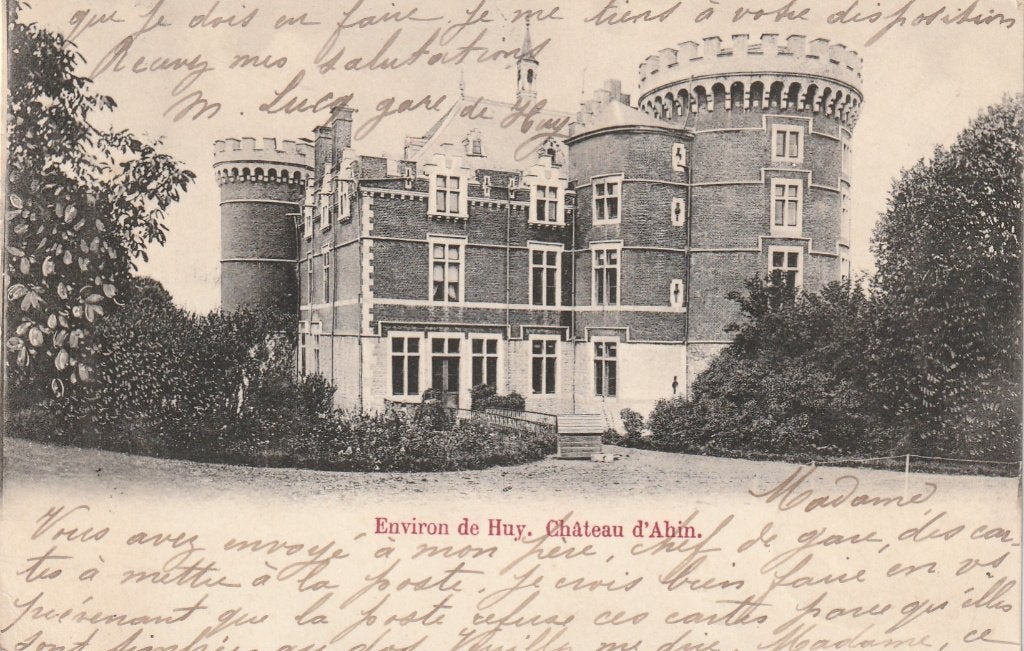 que je dois en faire, Je me tiens à votre disposition
Recevez mes salutations
M. Lucq gare de Huy
Environ de Huy. Château d'Ahin.
Madame,
Vous avez envoyé à mon père, chef de gare, des car-
tes à mettre à la poste, Je crois bien faire en vs
prévenant que la poste refuse ces cartes parce qu'elles
sont timbrées au dos Veuillez me dire, Madame, ce